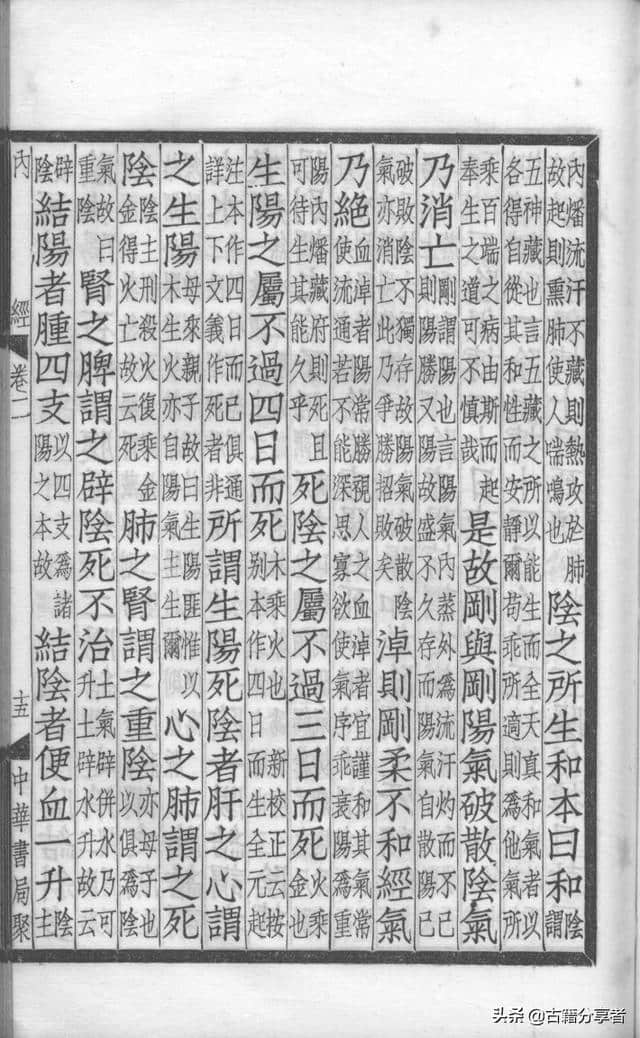 內燔流汗不藏則熱攻於肺故起則熏肺使人喘鳴也陰之所生和本曰和陰謂
五神藏也言五藏之所以能生而全天真和氣者以各得自從其和性而安靜爾苟乖所適則為他氣所
乘百端之病由斯而起奉生之道可不慎哉是故剛與剛陽氣破散陰氣
乃消亡剛謂陽也言陽氣內蒸外為流汗灼而不已則陽勝又陽故盛不久存而陽氣自散陽已
破敗陰不獨存故陽氣破散陰氣亦消亡此乃爭勝招敗矣淖則剛柔不和經氣
乃絕血淖者陽常勝視人之血淖者宜謹和其氣常使流通若不能深思寡欲使氣序乖衰陽為重
陽內燔藏府則死且可待生其能久乎死陰之屬不過三日而死火乘金也
生陽之屬不過四日而死木乘火也新校正云按别本作四日而生全元起
注本作四日而已俱通詳上下文義作死者非所謂生陽死陰者肝之心謂
之生陽母來親子故曰生陽匪惟以木生火亦自陽氣主生爾心之肺謂之死
陰陰主刑殺火復乘金金得火亡故云死肺之腎謂之重陰亦母子也以俱為陰
氣故曰重陰腎之脾謂之辟陰死不治土氣辟併水乃可升土辟水升故云
辟陰結陽者腫四支以四支為諸陽之本故結陰者便血一升陰主
內經 卷二 十五 中華書局聚
头条 @古籍分享者